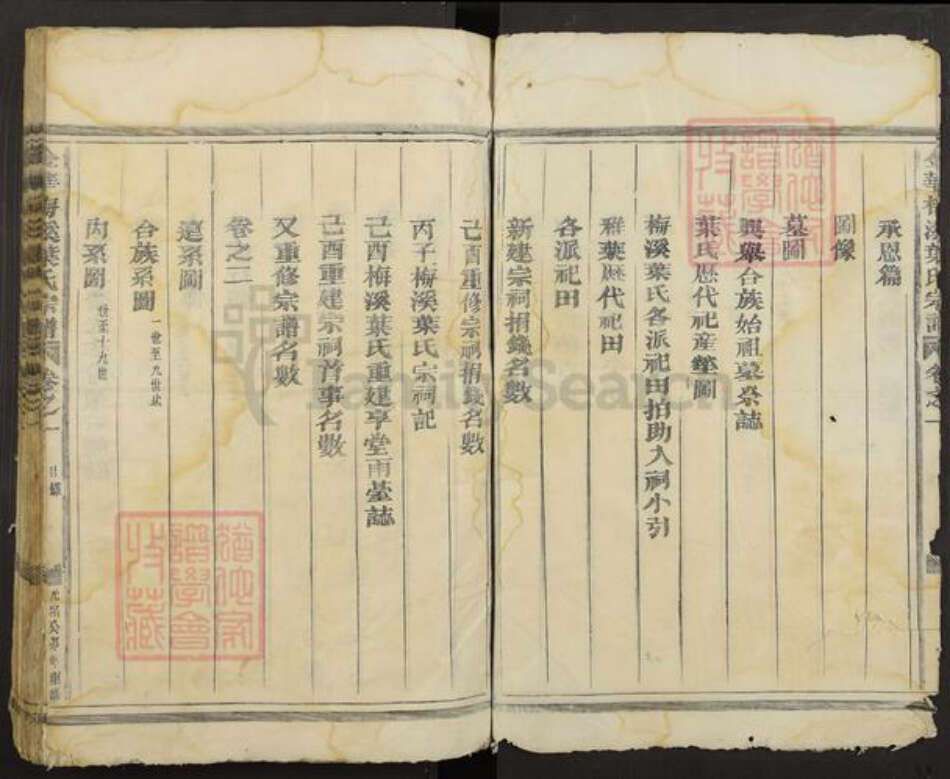 承恩篇
圖像
墓圖
興舉台族始祖墓祭誌
葉氏歷代祀産塋圖
梅溪葉氏各派祀田拍助入祠小引
祥葉歷代祀田
各派祀田
新建宗祠捐錢名數
己酉重修宗祠捐錢名數
丙子梅溪葉氏宗祠記
己酉梅溪葉氏重建亨堂雨臺誌
己酉重建宗祠首事名數
又重修宗譜名數
卷之二
遠系圖
合族系圖 一世至九世止
内系圖 世至十九世
梅溪葉氏宗譜 卷之一
目錄
FamilySearch
譜學會
收藏